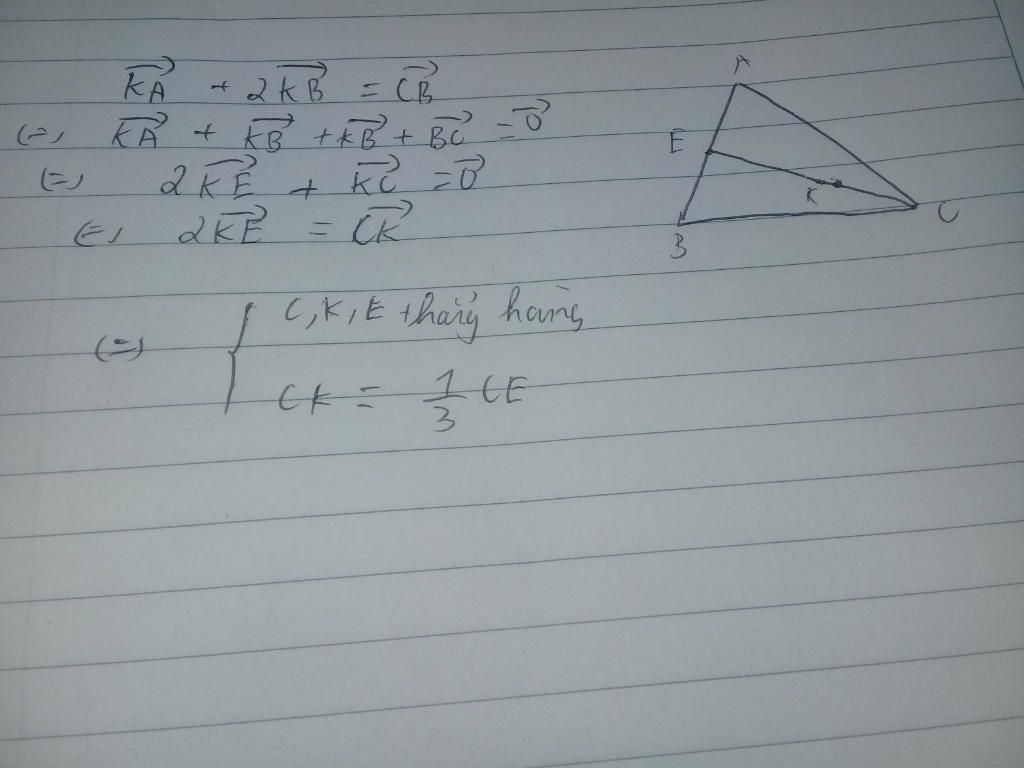 $\overrightarrow{KA} + 2\overrightarrow{KB} = \overrightarrow{CB}$
(=) $\overrightarrow{KA} + \overrightarrow{KB} + \overrightarrow{KB} + \overrightarrow{BC} = \overrightarrow{0}$
(=) $2\overrightarrow{KE} + \overrightarrow{KC} = \overrightarrow{0}$
(=) $2\overrightarrow{KE} = \overrightarrow{CK}$
(=) { C, K, E thẳng hàng
CK = $\frac{1}{3}$ CE
A
E
K
C
B